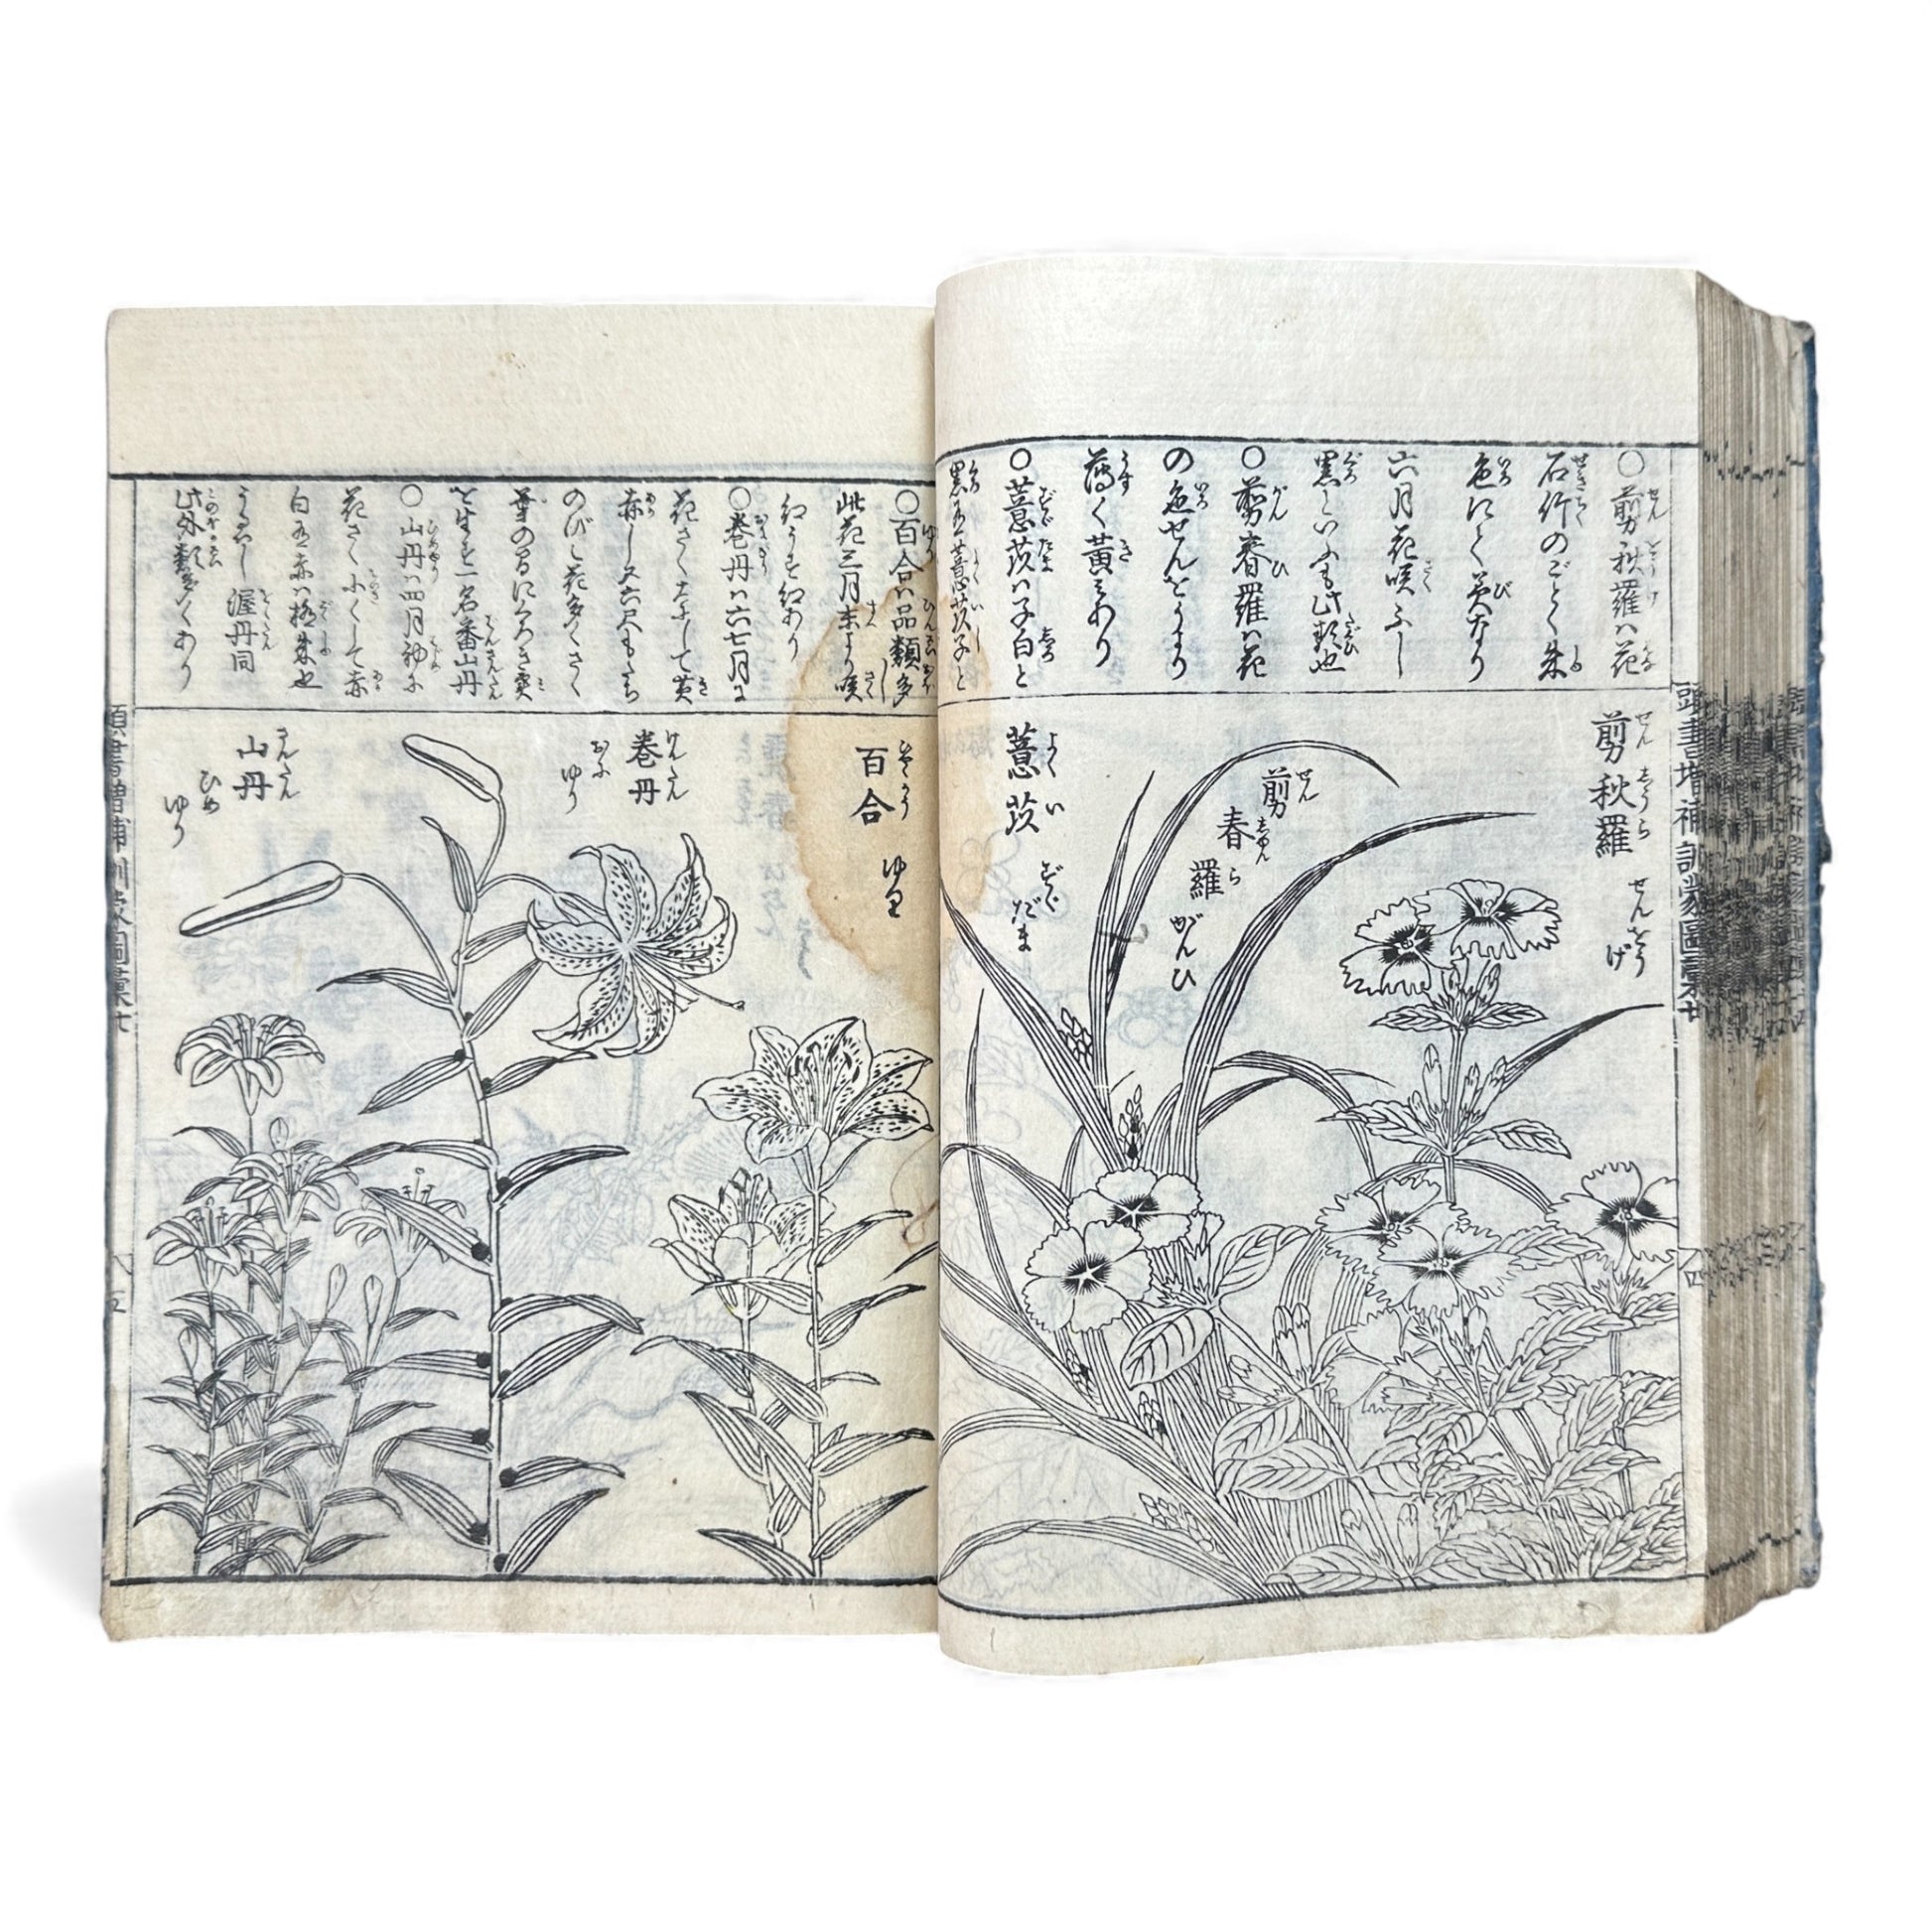 ○剪秋羅ハ花
石竹のごとく朱
色にして美なり
六月花咲ふし
黒しいふも此類也
○剪春羅ハ花
の色せんをうより
薄く黄みあり
○薏苡ハ子白と
黒有薏苡子と
剪秋羅 せんをうげ
剪春羅 がんひ
薏苡 ずゞだま
頭書増補訓蒙圖彙廿
四
○百合ハ品類多し
此花三月末より咲
紅うす紅あり
○巻丹ハ六七月に
花さく大にして黄
赤し又六尺もたち
のびて花多くさく
葉の間にくろき実
を生ず一名番山丹
○山丹ハ四月初に
花さく小くして赤
白有赤ハ極朱也
渥丹同
此外類多くあり
百合 ゆり
巻丹 おにゆり
山丹 ひめゆり
頭書増補訓蒙圖彙廿
五